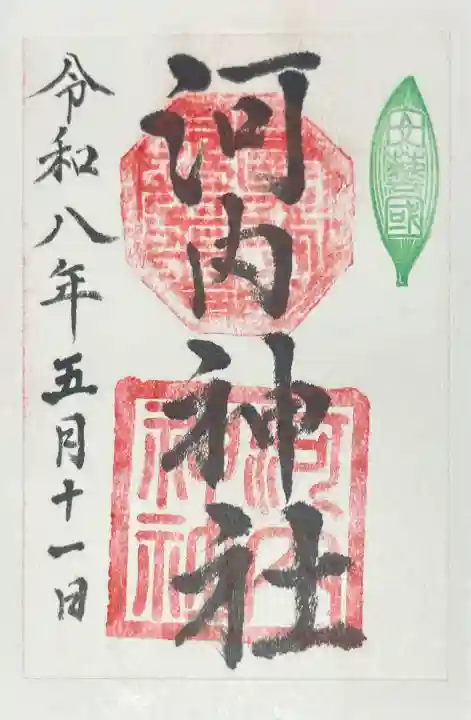 河内神社
令和八年五月十一日
河内
神社